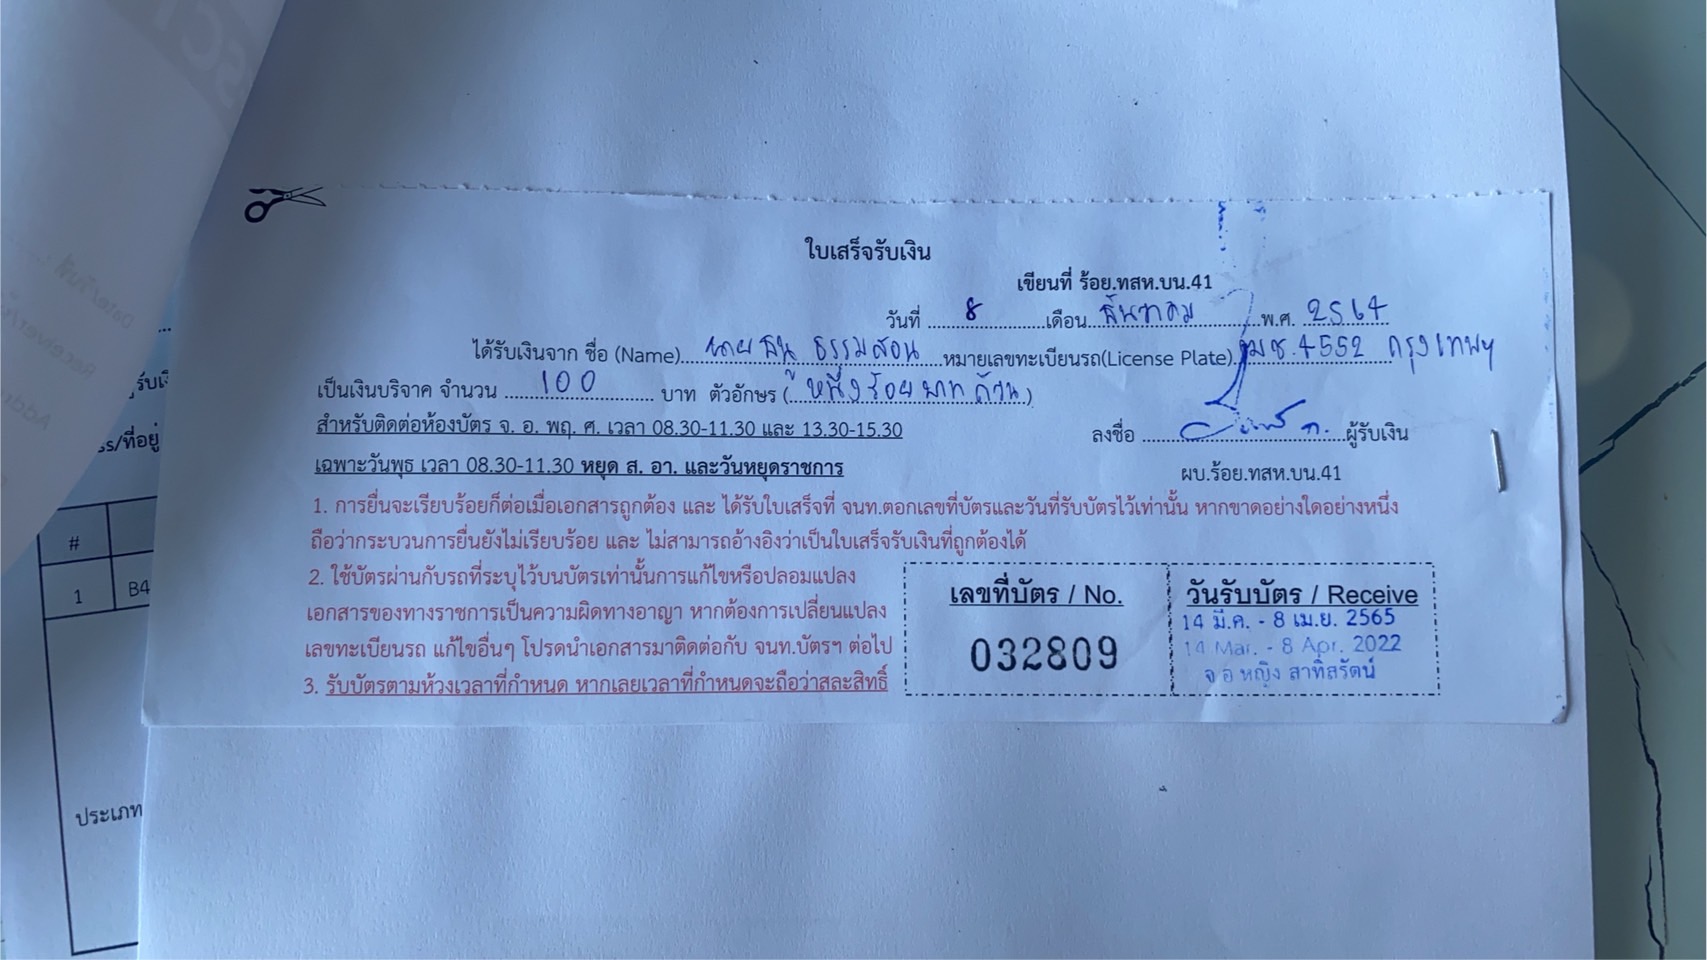 ใบเสร็จรับเงิน
เขียนที่ ร้อย.ทสห.บน.41
วันที่ 8 เดือน ธันวาคม พ.ศ. 2564
ได้รับเงินจาก ชื่อ (Name) นาย ธรรมสอน หมายเลขทะเบียนรถ(License Plate) 4552 กรุงเทพฯ
เป็นเงินบริจาค จำนวน 100 บาท ตัวอักษร ( หนึ่งร้อยบาทถ้วน )
สำหรับติดต่อห้องบัตร จ. อ. พฤ. ศ. เวลา 08.30-11.30 และ 13.30-15.30
ลงชื่อ ผู้รับเงิน
เฉพาะวันพุธ เวลา 08.30-11.30 หยุด ส. อา. และวันหยุดราชการ
ผบ.ร้อย.ทสห.บน.41
1. การยื่นจะเรียบร้อยก็ต่อเมื่อเอกสารถูกต้อง และ ได้รับใบเสร็จที่ จนท.ตอกเลขที่บัตรและวันที่รับบัตรไว้เท่านั้น หากขาดอย่างใดอย่างหนึ่ง
ถือว่ากระบวนการยื่นยังไม่เรียบร้อย และ ไม่สามารถอ้างอิงว่าเป็นใบเสร็จรับเงินที่ถูกต้องได้
2. ใช้บัตรผ่านกับรถที่ระบุไว้บนบัตรเท่านั้นการแก้ไขหรือปลอมแปลง
เอกสารของทางราชการเป็นความผิดทางอาญา หากต้องการเปลี่ยนแปลง
เลขทะเบียนรถ แก้ไขอื่นๆ โปรดนำเอกสารมาติดต่อกับ จนท.บัตรฯ ต่อไป
3. รับบัตรตามห้วงเวลาที่กำหนด หากเลยเวลาที่กำหนดจะถือว่าสละสิทธิ์
เลขที่บัตร / No.
032809
วันรับบัตร / Receive
14 มี.ค. - 8 เม.ย. 2565
14 Mar. - 8 Apr. 2022
จ อ หญิง สาทิสรัตน์
ss/ที่อยู่
#
1 B4
ประเภท